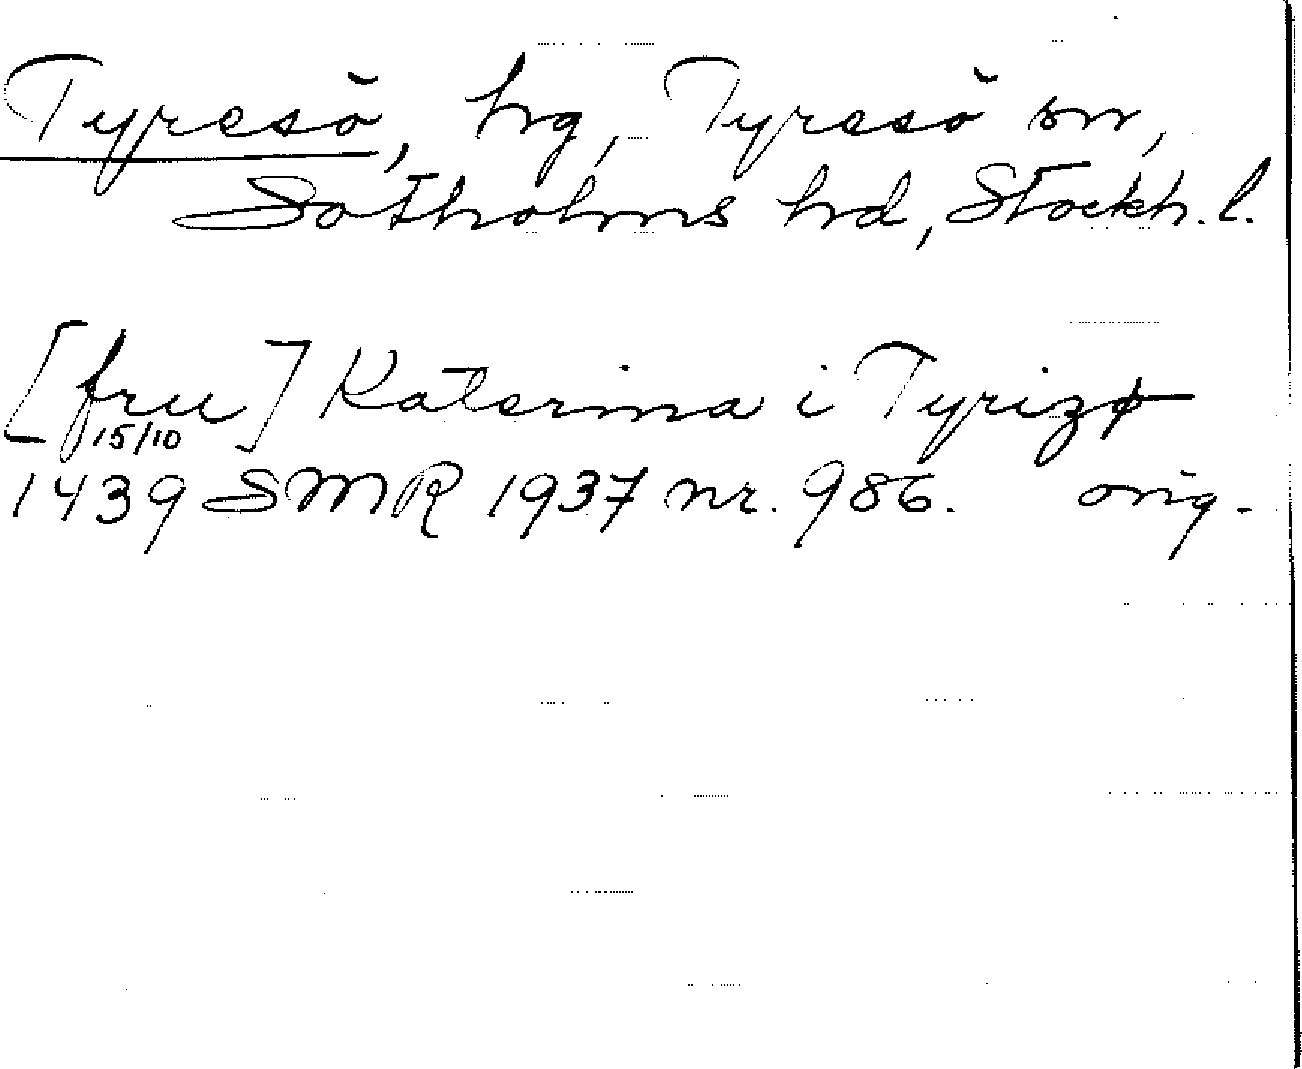 Tyresö, hg, Tyresö sn,
Sotholms hd, Stockh. l.
[fru] Katerina i Tyrizø
15/10
1439 SMR 1937 nr. 986. orig.